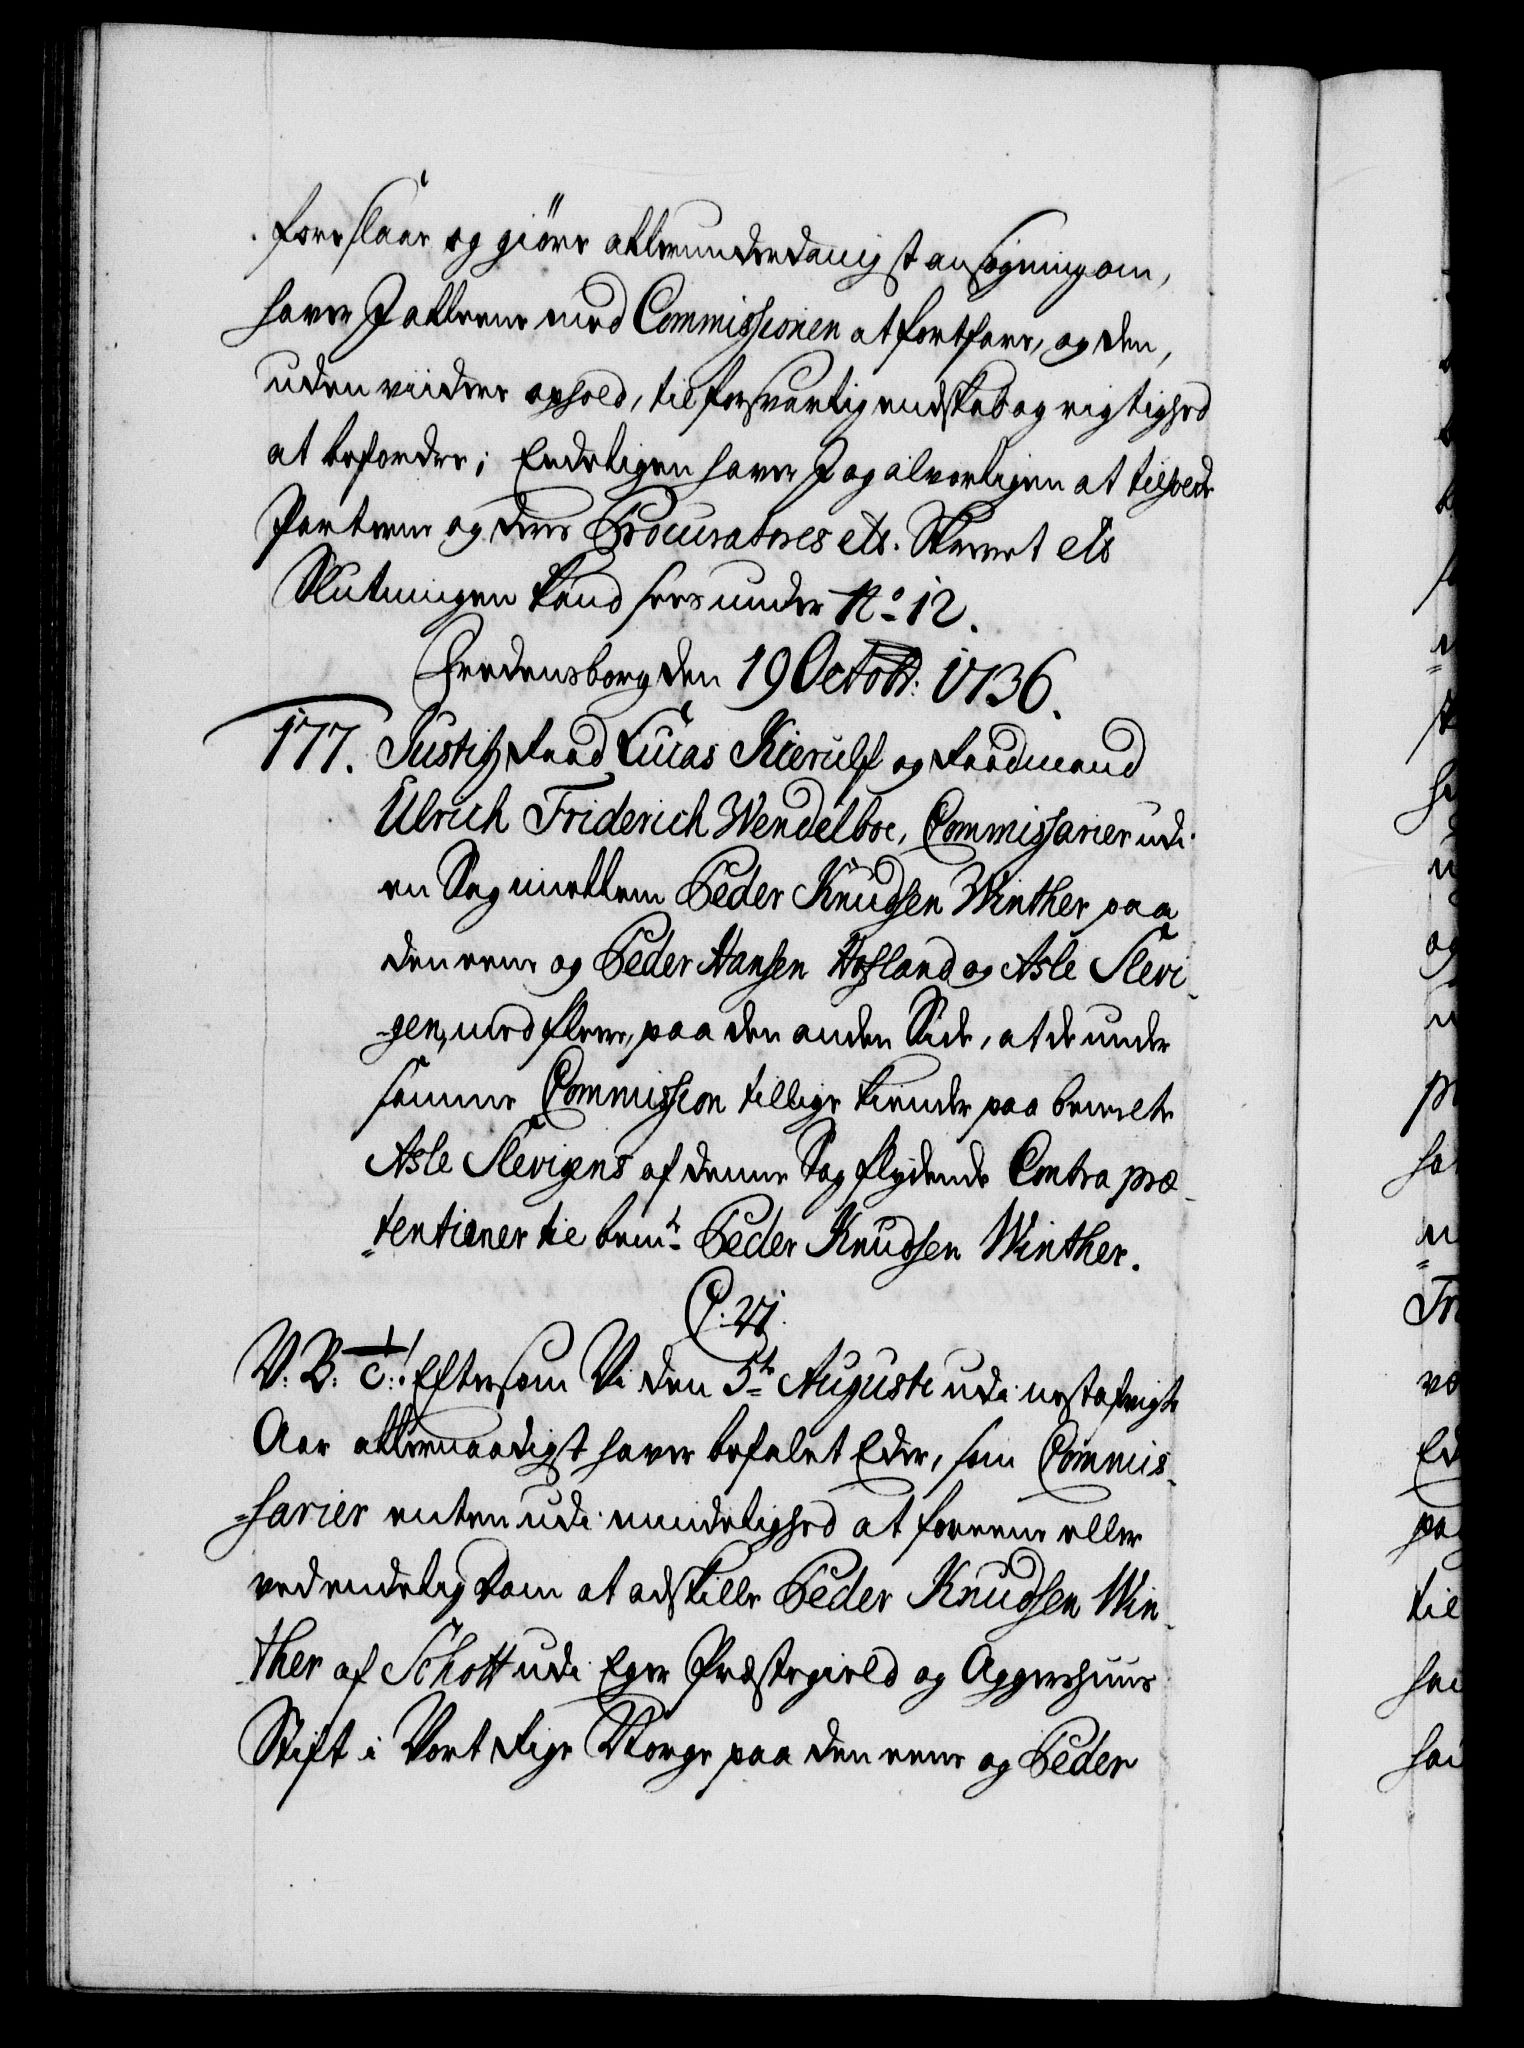 foreslaar og giöre allerunderdanigst ansøgning om,
haver I allene med Commissionen at fortfare, og den,
uden viidere ophold, til forsvarlig endskab og rigtighed
at befordre; Endeligen haver I og alvorligen at tilholde
Parterne og deres Procuratores etc. Skrevet etc
Slutningen kand sees under No. 12.
Fredensborg den 19 Octobr: 1736.
177. Justitz Raad Lucas Kierulf og Raadmand
Ulrich Friderich Wendelboe, Commissarier udi
en Sag imellem Peder Knudsen Winther paa
den eene og Peder Hansen Hofland og Asle Slevi-
gen, med flere, paa den anden Side, at de under
samme Commission tillige kiende paa bemelte
Asle Slevigens af denne Sag flydende Contra præ-
tentioner til bemte Peder Knudsen Winther.
C. VI.
V. B. C: Eftersom Vi den 5te Augusti udi nestafvigte
Aar allernaadigst haver befalet Eder, som Commis-
sarier enten udi mindelighed at foreene eller
ved endelig Dom at adskille Peder Knudsen Win-
ther af Schott udi Eger Præstegield og Aggershuus
Stift i Vort Rige Norge paa den eene og Peder